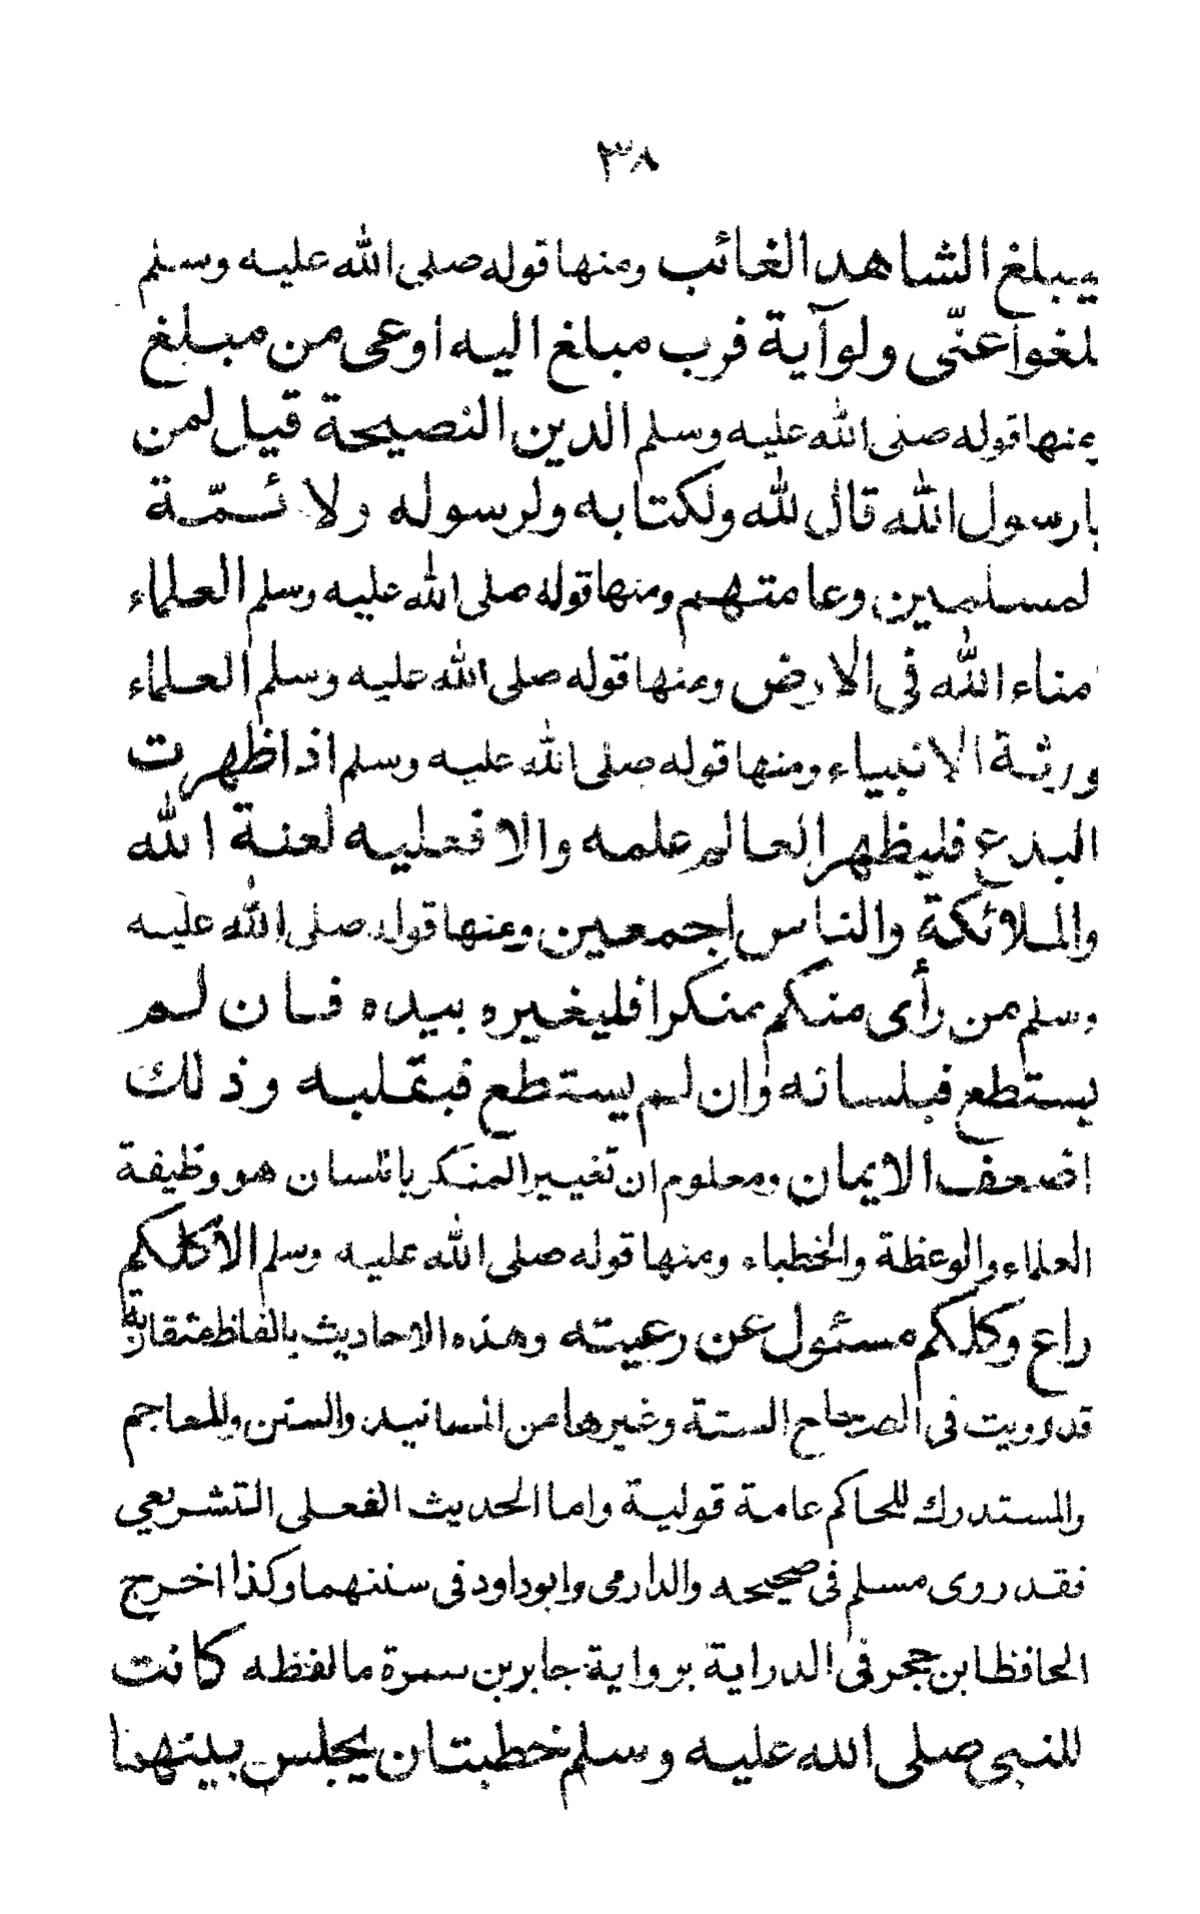 ٣٨
يبلغ الشاهد الغائب ومنها قوله صلى الله عليه وسلم
بلغوا عنّى ولو آية فرب مبلغ اليه اوعى من مبلغ
ومنها قوله صلى الله عليه وسلم الدين النصيحة قيل لمن
يا رسول الله قال لله ولكتابه ولرسوله ولائمّة
لمسلمين وعامتهم ومنها قوله صلى الله عليه وسلم العلماء
امناء الله فى الارض ومنها قوله صلى الله عليه وسلم العلماء
ورثة الانبياء ومنها قوله صلى الله عليه وسلم اذا ظهرت
البدع فليظهر العالم علمه والا فعليه لعنة الله
والملائكة والناس اجمعين ومنها قوله صلى الله عليه
وسلم من رأى منكم منكرا فليغيره بيده فان لم
يستطع فبلسانه وان لم يستطع فبقلبه وذلك
اضعف الايمان ومعلوم ان تغيير المنكر باللسان هو وظيفة
العلماء والوعظة والخطباء ومنها قوله صلى الله عليه وسلم الا كلكم
راع وكلكم مسئول عن رعيته وهذه الاحاديث بالفاظ متقاربة
قد رويت فى الصحاح الستة وغيرها من المسانيد والسنن والمعاجم
والمستدرك للحاكم عامة قولية واما الحديث الفعلى التشريعي
فقد روى مسلم فى صحيحه والدارمى وابوداود فى سننهما وكذا اخرج
الحافظ ابن حجر فى الدراية برواية جابر بن سمرة ما لفظه كانت
للنبى صلى الله عليه وسلم خطبتان يجلس بينهما